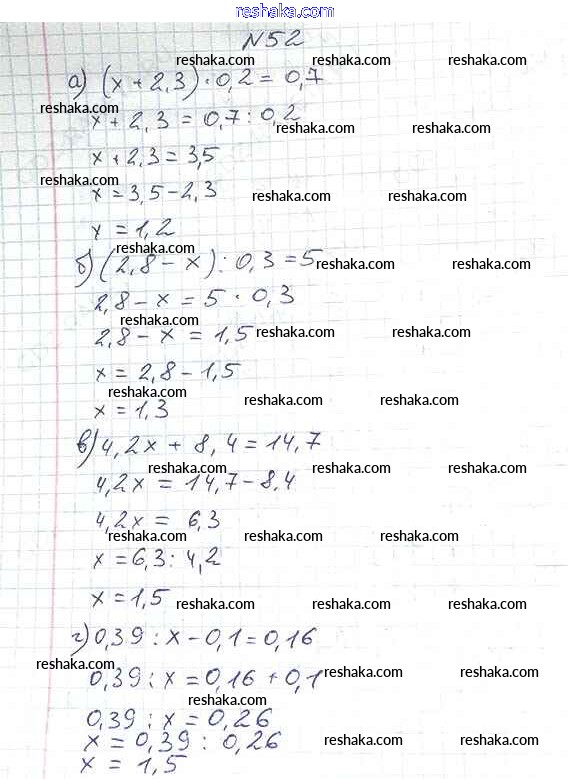 gdzbest.com
N52
reshaka.com reshaka.com reshaka.com
а) (x + 2,3) · 0,2 = 0,7
reshaka.com reshaka.com reshaka.com
x + 2,3 = 0,7 : 0,2
reshaka.com reshaka.com
x + 2,3 = 3,5
reshaka.com reshaka.com reshaka.com
x = 3,5 - 2,3
reshaka.com reshaka.com
x = 1,2
reshaka.com
б) (2,8 - x) : 0,3 = 5
reshaka.com reshaka.com
2,8 - x = 5 · 0,3
reshaka.com reshaka.com reshaka.com
2,8 - x = 1,5
reshaka.com reshaka.com
x = 2,8 - 1,5
reshaka.com reshaka.com reshaka.com
x = 1,3
в) 4,2x + 8,4 = 14,7
reshaka.com reshaka.com reshaka.com
4,2x = 14,7 - 8,4
4,2x = 6,3
reshaka.com reshaka.com reshaka.com
x = 6,3 : 4,2
x = 1,5
reshaka.com reshaka.com reshaka.com
г) 0,39 : x - 0,1 = 0,16
reshaka.com reshaka.com reshaka.com
0,39 : x = 0,16 + 0,1
reshaka.com
0,39 : x = 0,26
x = 0,39 : 0,26
reshaka.com reshaka.com
x = 1,5